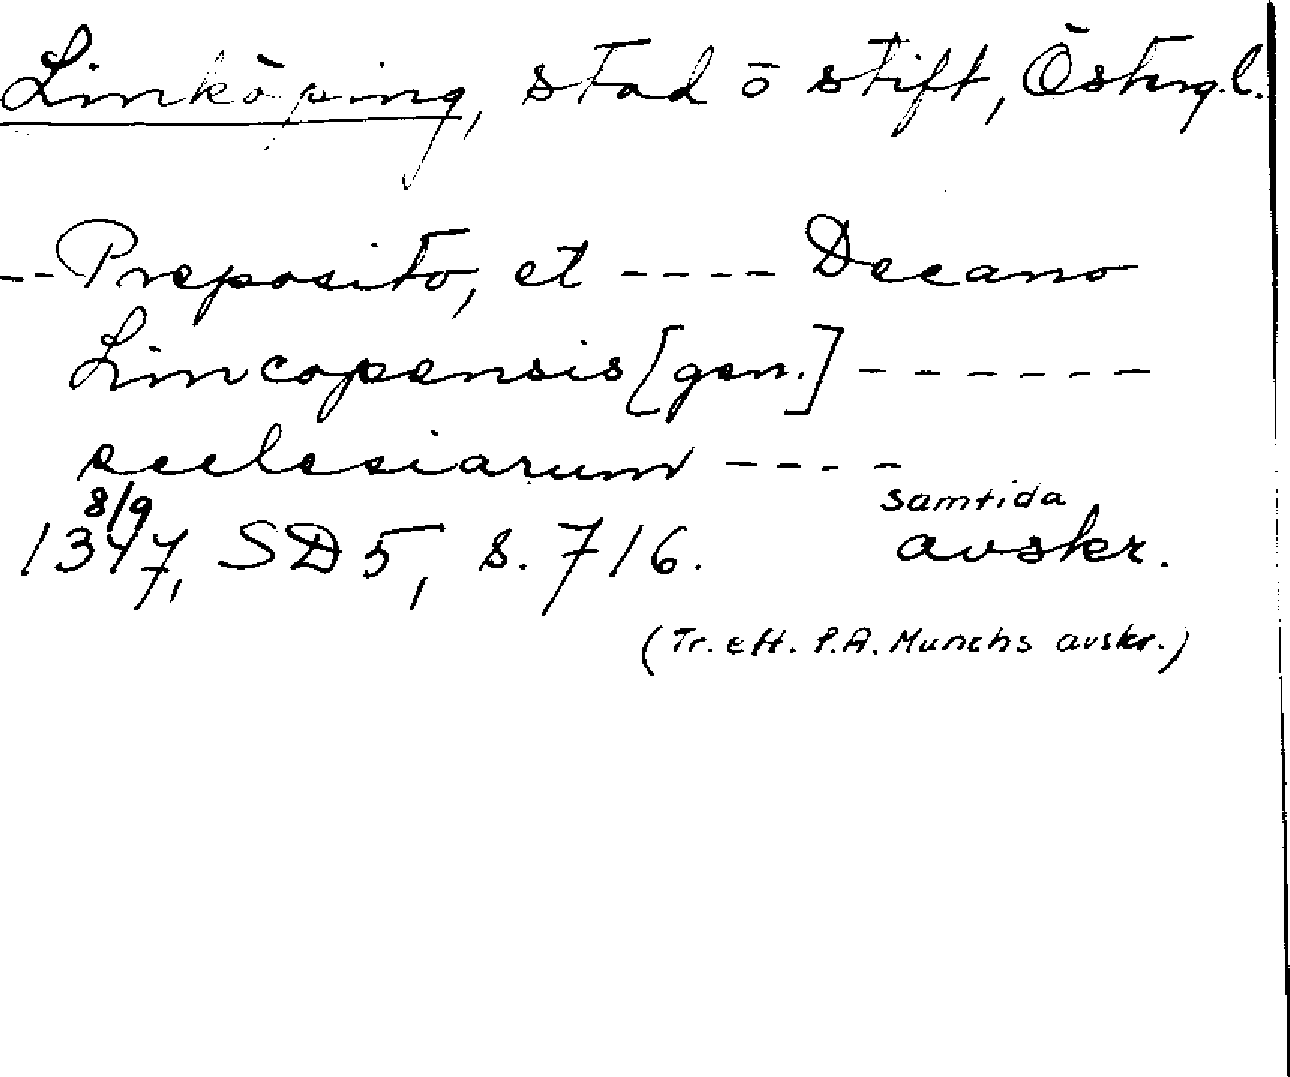 Linköping, stad o stift, Östergl.
-- Preposito, et ---- Decano
Lincopensis [gen.] ------
ecclesiarum ----
8/9 samtida
1347, SD 5, s. 716. avskr.
(Tr. eft. P.A. Munchs avskr.)